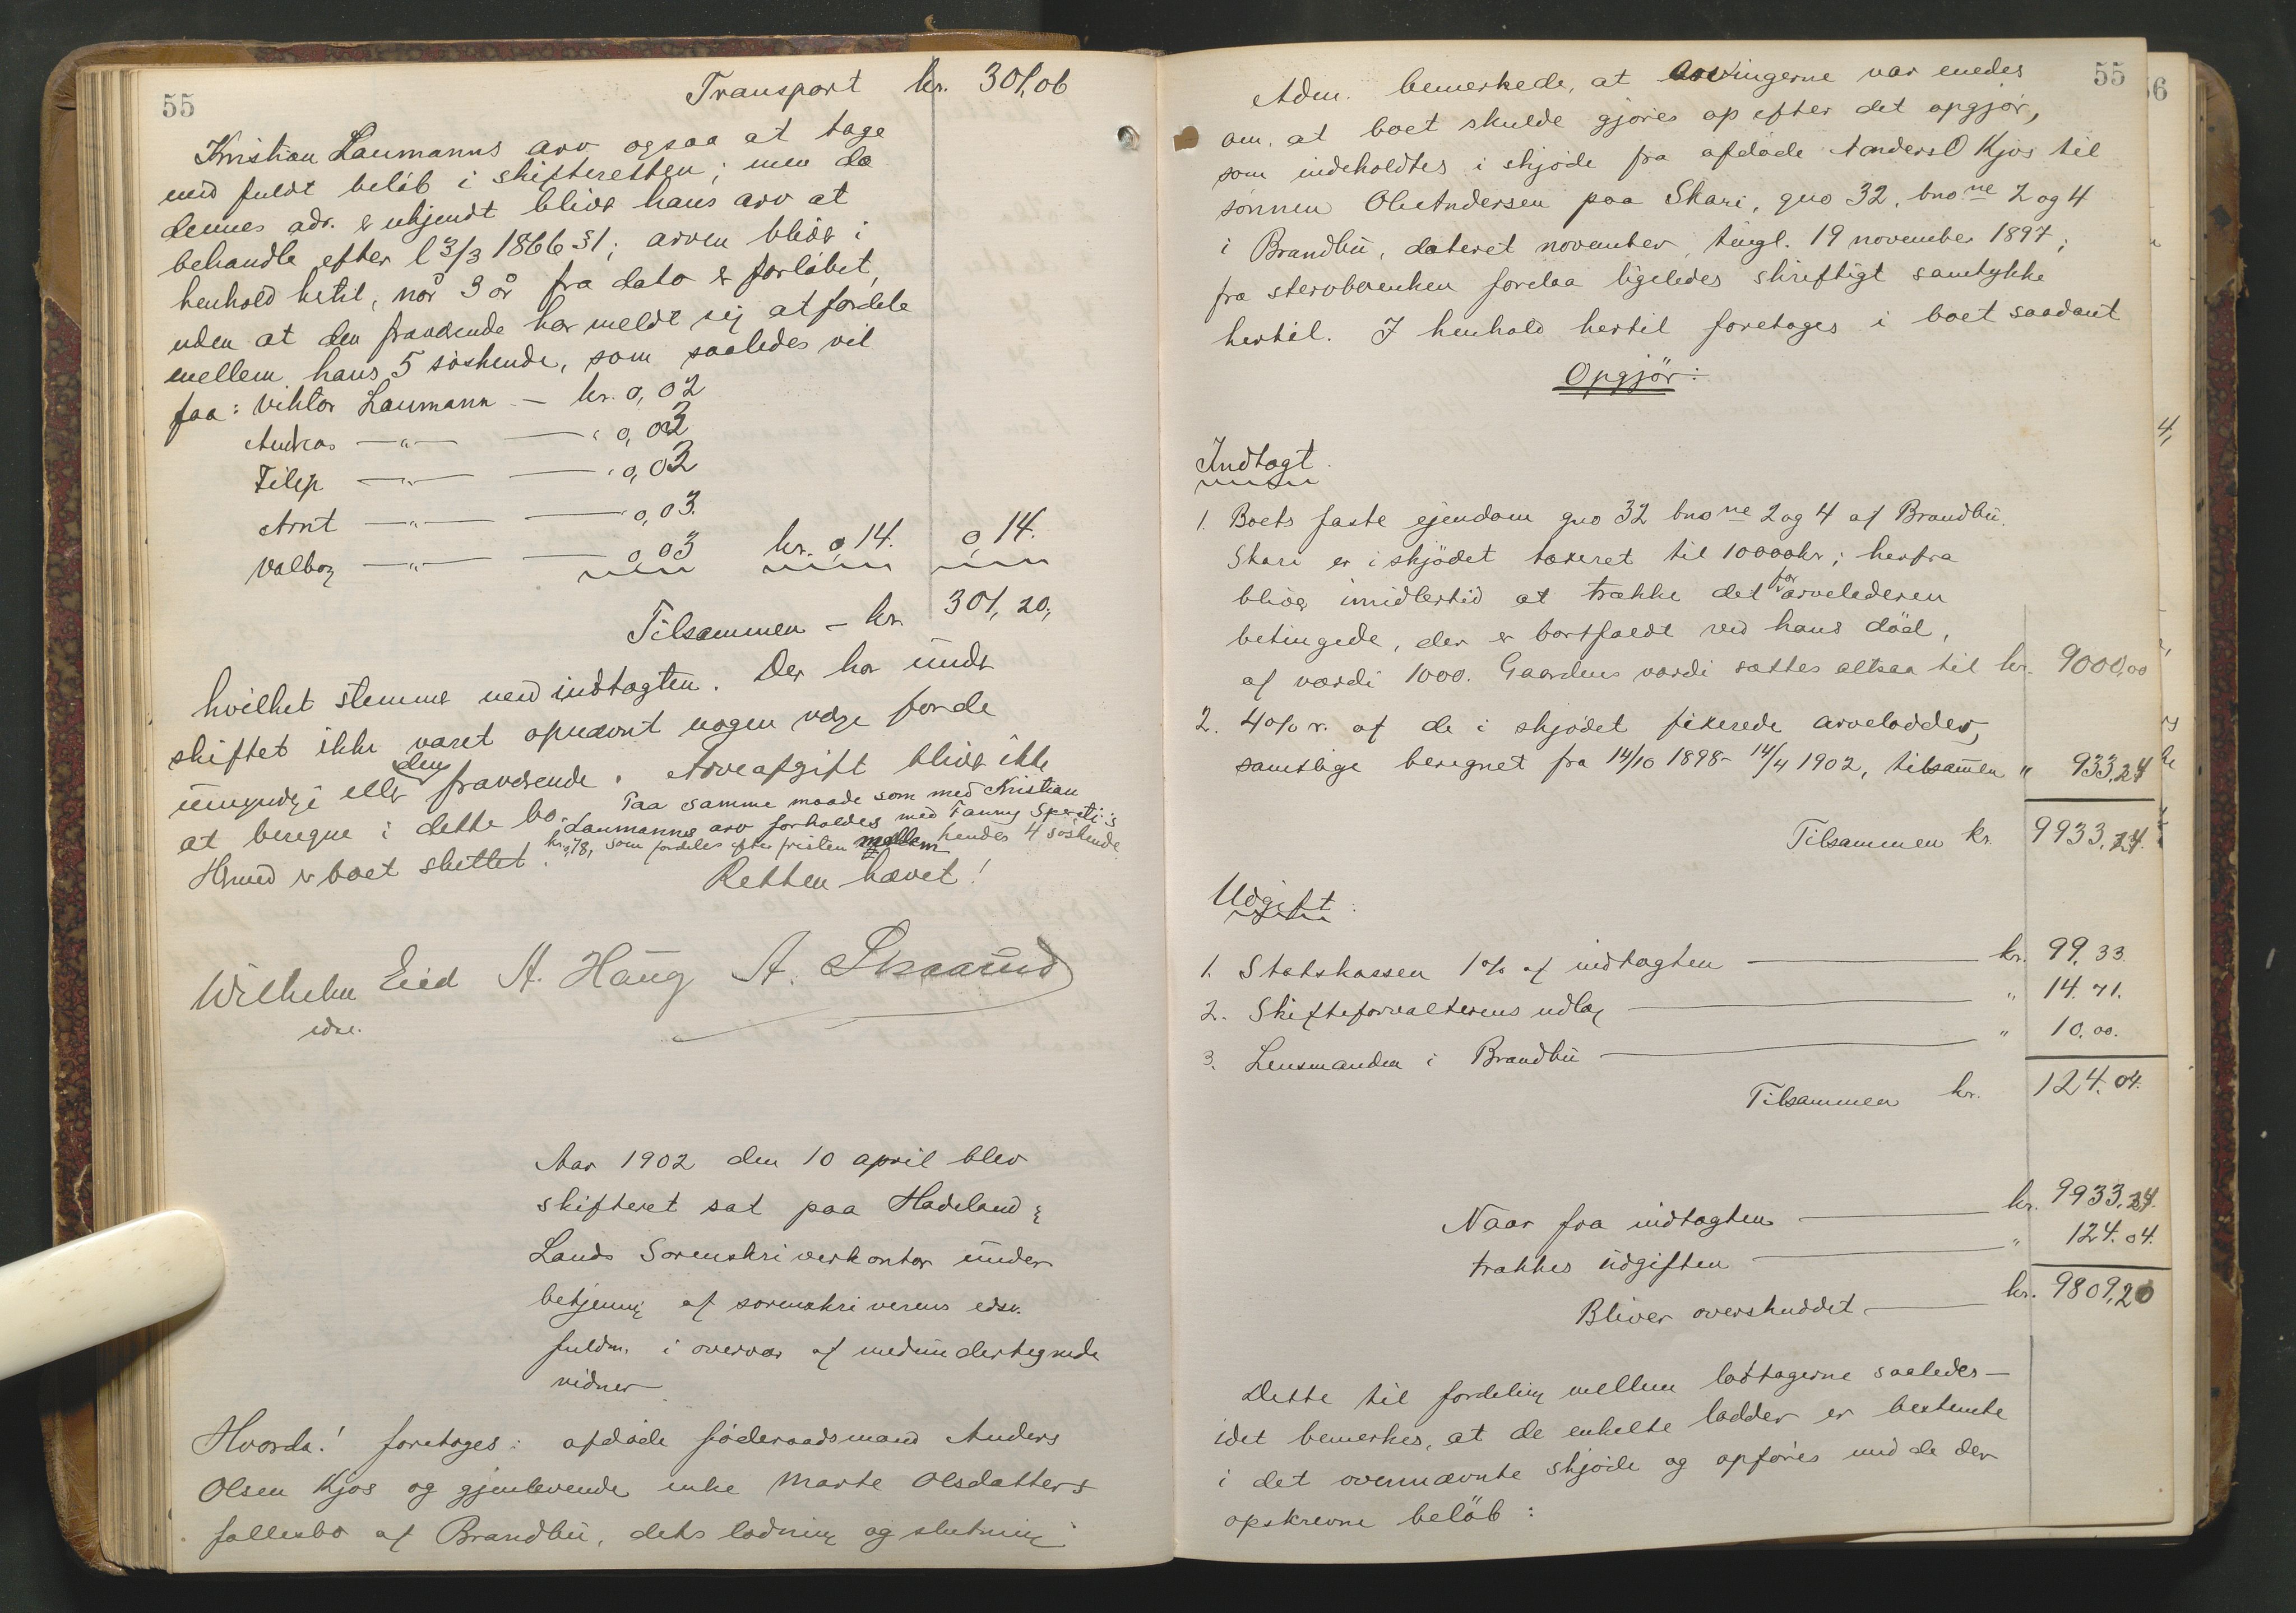 55
Transport kr. 301,06
Kristian Laumanns arv ogsaa at tage
med fuldt beløb i skifteretten; men da
dennes adr. er ukjendt bliver hans arv at
behandle efter l 3/3 1866 §1; arven bliver i
henhold hertil, når 3 år fra dato er forløbet,
uden at den fraværende har meldt sig at fordele
mellem hans 5 søskende, som saaledes vil
faa: Viktor Laumann — kr. 0,02
Andreas —"— — " 0,03
Filip —"— — " 0,03
Arnt —"— — 0,03.
Valborg —"— — 0,03 kr. 0,14. 0,14.
Tilsammen — kr. 301,20,
hvilket stemmer med indtægten. Der har under
skiftet ikke været opnævnt nogen værge for de
umyndige eller den fraværende. Arveafgift bliver ikke
at beregne i dette bo. Paa samme maade som med Kristian
Laumanns arv forholdes med Fanny
kr. 0,18, som fordeles efter fristen mellem hendes 4 søskende
Hermed er boet sluttet.
Retten hævet!
Wilhelm Eid A. Haug A. Skaarud
edsv.
Aar 1902 den 10 april blev
skifteret sat paa Hadeland &
Lands Sorenskriverkontor under
betjening af sorenskriverens edsv.
fuldm. i overvær af medundertegnede
vidner
Hvorda! foretoges: afdøde føderaadsmand Anders
Olsen Kjos og gjenlevende enke Marte Olsdatters
fællesbo af Brandbu, dets lodning og slutning
55
56
Adm. bemerkede, at arvingerne var enedes
om, at boet skulde gjøres op efter det opgjør,
som indeholdtes i skjøde fra afdøde Anders O Kjos til
sønnen Ole Andersen paa Skari, gno 32, bno ne 2 og 4
i Brandbu, dateret november, tingl. 19 november 1897;
fra stervboenken forelaa ligeledes skriftligt samtykke
hertil. I henhold hertil foretoges i boet saadant
Opgjør:
Indtægt.
1. Boets faste ejendom gno 32 bno ne 2 og 4 af Brandbu.
Skari er i skjødet taxeret til 10000 kr; herfra
bliver imidlertid at trække det for arveladeren
betingede, der er bortfaldt ved hans død,
af værdi 1000. Gaardens værdi sættes altsaa til kr. 9000,00
2. 4% r. af de i skjødet fixerede arvelodder,
samtlige beregnet fra 14/10 1898 - 14/4 1902, tilsammen " 933,24
Tilsammen kr. 9933,24.
Udgift:
1. Statskassen 1% af indtægten — kr. 99,33.
2. Skifteforvalterens udlæg — " 14.71.
3. Lensmanden i Brandbu — " 10,00.
Tilsammen kr. 124.04.
Naar fra indtægten — kr. 9933,24.
trækkes udgiften — " 124.04.
Bliver overskuddet — kr. 9809,20
Dette til fordeling mellem lodtagerne saaledes —
idet bemerkes, at de enkelte lodder er bestemte
i det ovennævnte skjøde og opføres med de der
opskrevne beløb: